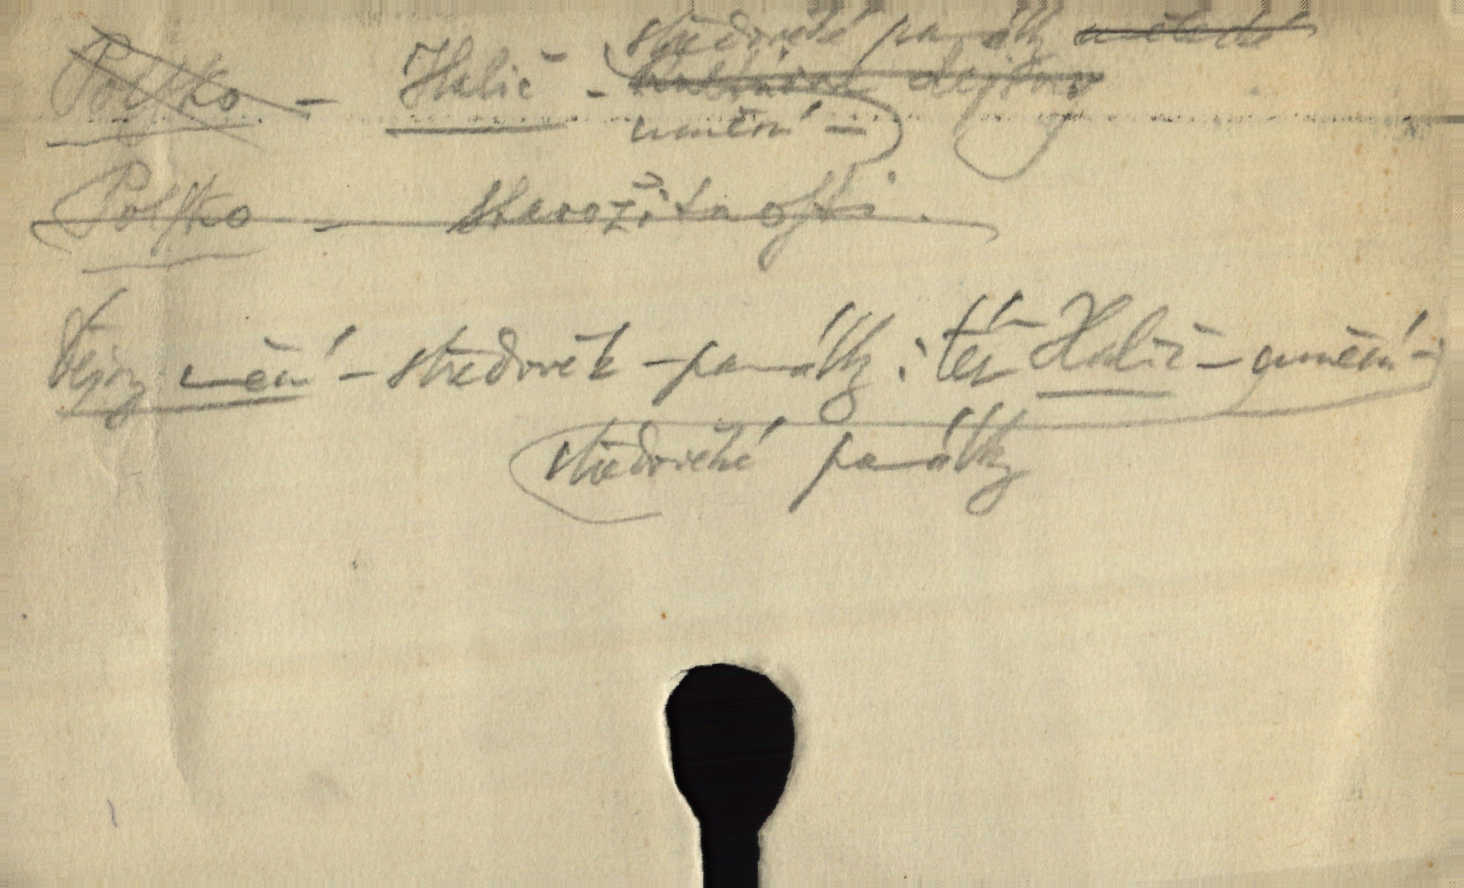 středověké památky umělecké
Polsko - Halič - kulturní dějiny
umění -
Polsko - starožitnosti.
Dějiny umění - středověk - památky; též Halič - umění -
středověké památky